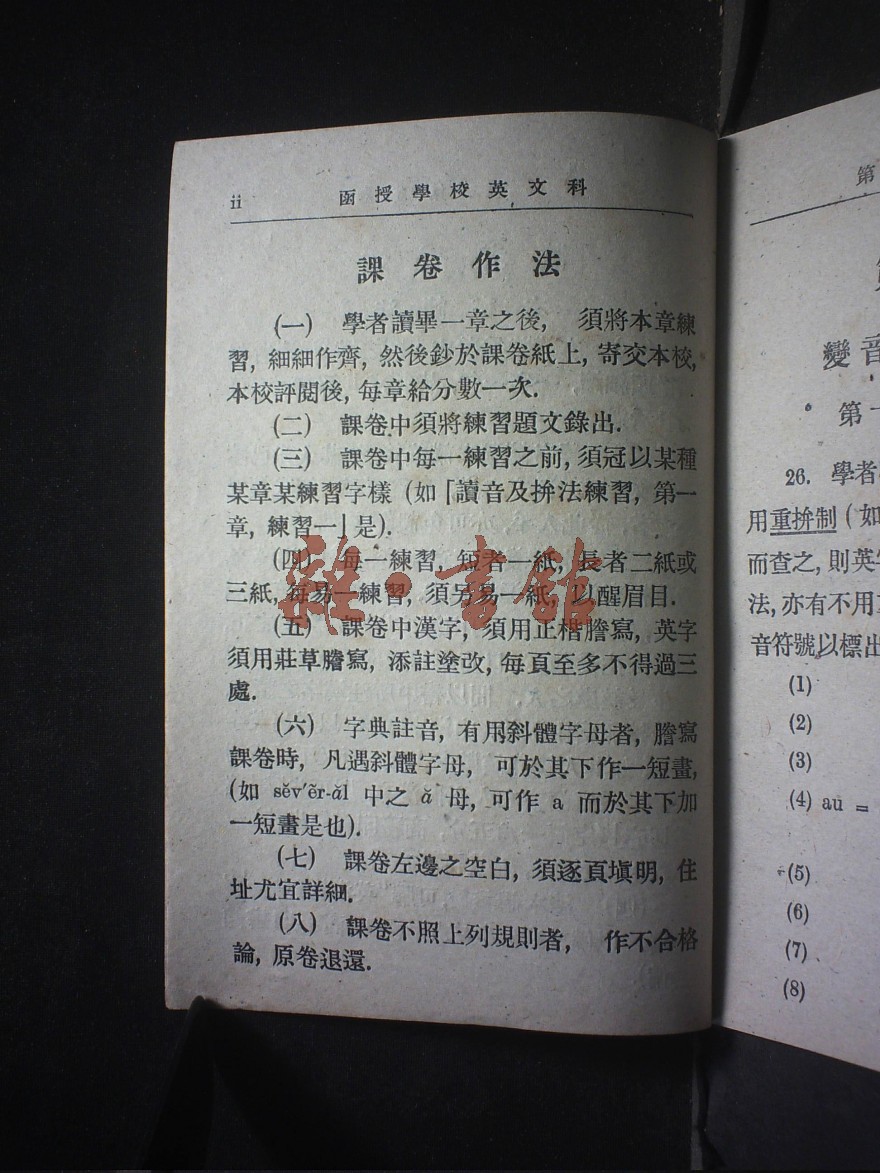 ii 函授學校英文科
課卷作法
(一) 學者讀畢一章之後, 須將本章練
習, 細細作齊, 然後鈔於課卷紙上, 寄交本校,
本校評閱後, 每章給分數一次.
(二) 課卷中須將練習題文錄出.
(三) 課卷中每一練習之前, 須冠以某種
某章某練習字樣 (如「讀音及拚法練習, 第一
章, 練習一」是).
(四) 每一練習, 短者一紙, 長者二紙或
三紙, 每易一練習, 須另易一紙, 以醒眉目.
(五) 課卷中漢字, 須用正楷謄寫, 英字
須用莊草謄寫, 添註塗改, 每頁至多不得過三
處.
(六) 字典註音, 有用斜體字母者, 謄寫
課卷時, 凡遇斜體字母, 可於其下作一短畫,
(如 sĕv′ĕr-ăl 中之 ă 母, 可作 a 而於其下加
一短畫是也).
(七) 課卷左邊之空白, 須逐頁塡明, 住
址尤宜詳細.
(八) 課卷不照上列規則者, 作不合格
論, 原卷退還.
雜·書館
第
變音
第一
26. 學者
用重拚制 (如
而查之, 則英
法, 亦有不用
音符號以標出
(1)
(2)
(3)
(4) au =
(5)
(6)
(7)
(8)